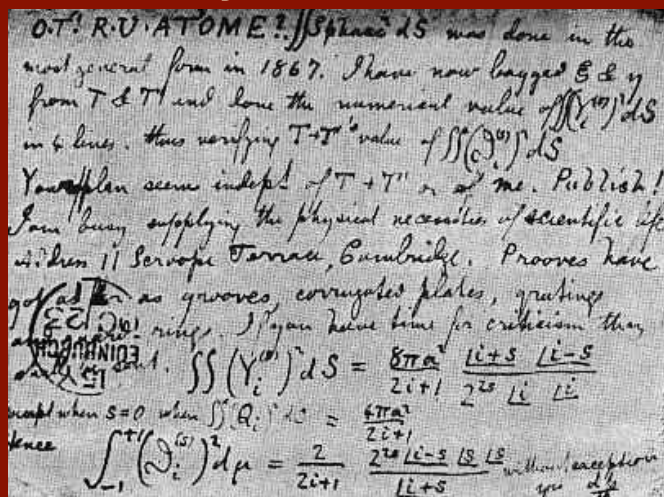 O.T! R.U. AT OME? ∬Spharc² dS was done in the
most general form in 1867. I have now bagged ξ & η
from T & T' and done the numerical value of ∬(Y_i^(s))² dS
in 4 lines. thus verifying T+T''s value of ∬(ϑ_i^(s))² dS
Your plan seems indept of T + T' or of me. Publish!
I am busy supplying the physical necessities of scientific life
Address 11 Scroope Terrace, Cambridge. Prooves have
got as far as grooves, corrugated plates, gratings
rings. If you have time for criticism they
sent. ∬(Y_i^(s))² dS = 8πa²/(2i+1) · |i+s |i-s / 2^(2s) |i |i
EDINBURGH
except when s=0 when ∬(Q_i)² dS = 4πa²/(2i+1)
Hence ∫_{-1}^{+1} (ϑ_i^(s))² dμ = 2/(2i+1) · 2^(2s) |i-s |s |s / |i+s without exception
yrs dp/dt